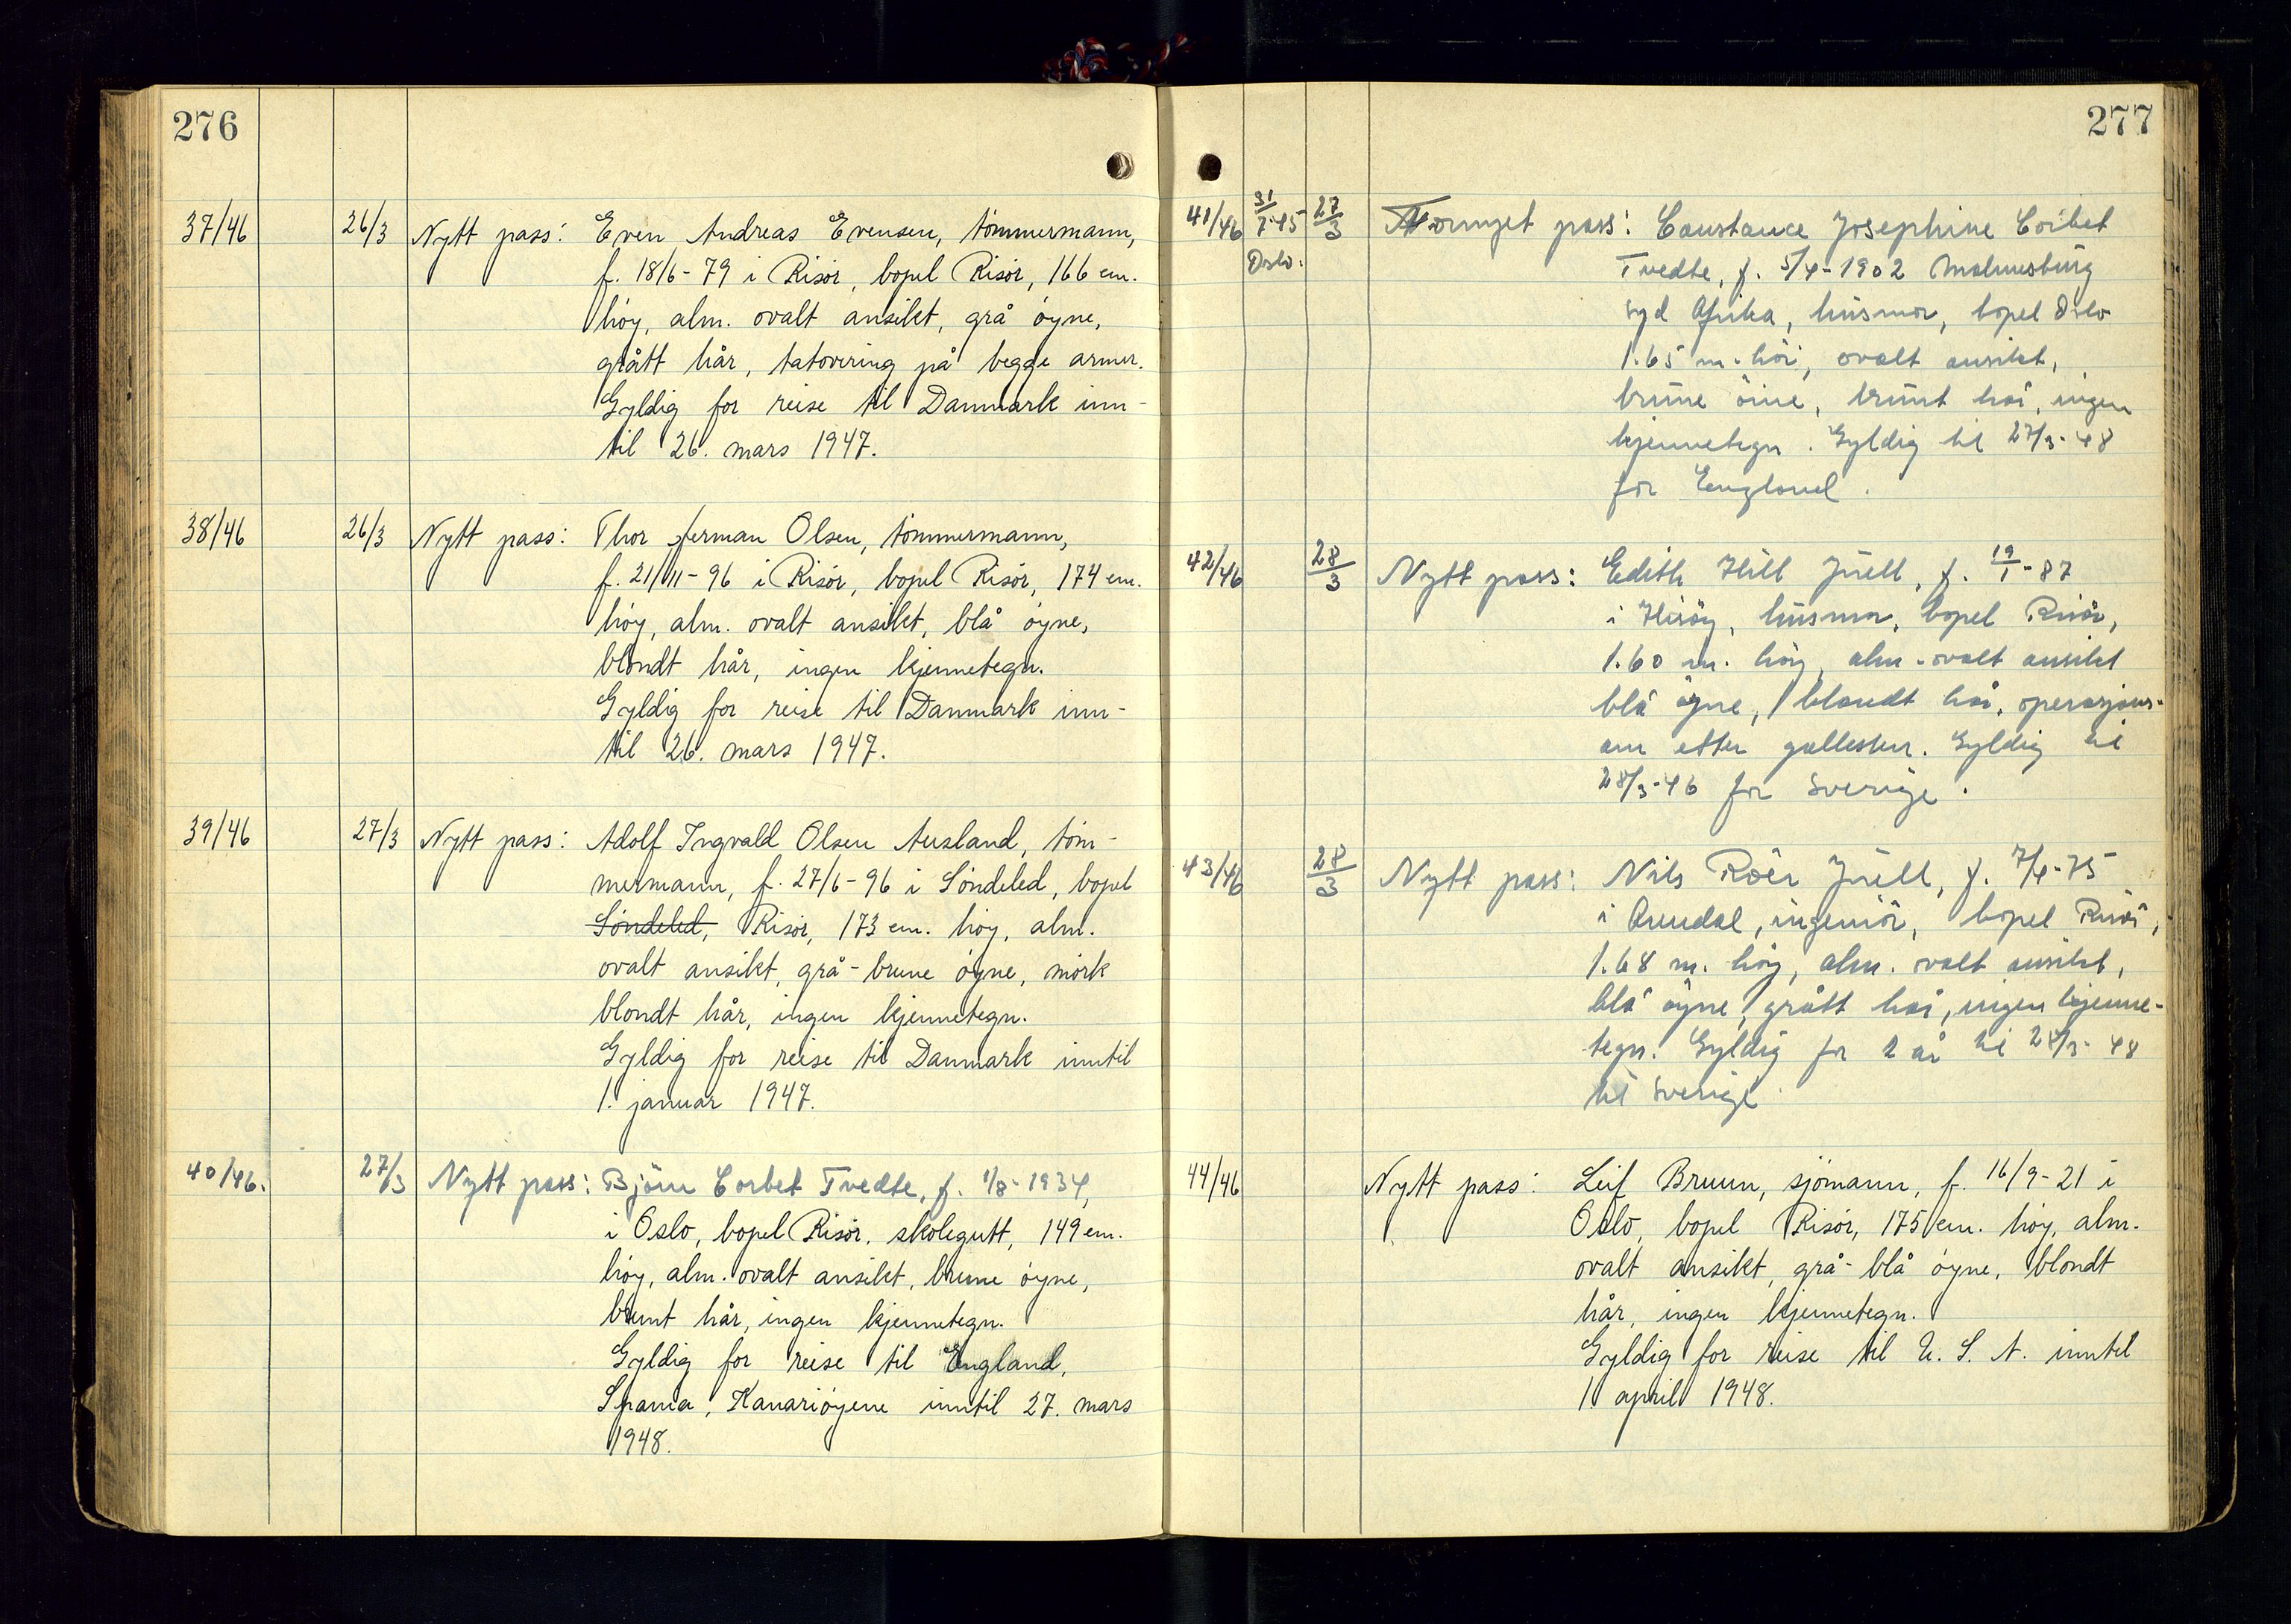 276
37/46 26/3 Nytt pass: Even Andreas Evensen, tömmermann,
f. 18/6-79 i Risör, bopel Risör, 166 cm.
höy, alm. ovalt ansikt, grå öyne,
grått hår, tatovering på begge armer.
Gyldig for reise til Danmark inn-
til 26. mars 1947.
38/46 26/3 Nytt pass: Thor Herman Olsen, tömmermann,
f. 21/11-96 i Risör, bopel Risör, 174 cm.
höy, alm. ovalt ansikt, blå öyne,
blondt hår, ingen kjennetegn.
Gyldig for reise til Danmark inn-
til 26. mars 1947.
39/46 27/3 Nytt pass: Adolf Ingvald Olsen Ausland, töm-
mermann, f. 27/6-96 i Söndeled, bopel
Söndeled, Risör, 173 cm. höy, alm.
ovalt ansikt, grå-brune öyne, mörk
blondt hår, ingen kjennetegn.
Gyldig for reise til Danmark inntil
1. januar 1947.
40/46. 27/3 Nytt pass: Björn Corbet Tvedte, f. 1/8-1934,
i Oslo, bopel Risör, skolegutt, 149 cm.
höy, alm. ovalt ansikt, brune öyne,
brunt hår, ingen kjennetegn.
Gyldig for reise til England,
Spania, Kanariöyene inntil 27. mars
1948.
277
41/46 31/7-45 Oslo. 27/3 Fornyet pass: Constance Josephine Corbet
Tvedte, f. 5/4-1902 Malmesbury
Syd Afrika, husmor, bopel Oslo
1.65 m. höi, ovalt ansikt,
brune öine, brunt hår, ingen
kjennetegn. Gyldig til 27/3-48
for England.
42/46 28/3 Nytt pass: Edith Hill Juell, f. 19/1-87
i Hisöy, husmor, bopel Risör,
1.60 m. höy, alm. ovalt ansikt
blå öyne, blondt hår, operasjons-
arr etter gallesten. Gyldig til
28/3-46 for Sverige.
43/46 28/3 Nytt pass: Nils Röer Juell, f. 7/4-75
i Arendal, ingeniör, bopel Risör,
1.68 m. höy, alm. ovalt ansikt,
blå öyne, grått hår, ingen kjenne-
tegn. Gyldig for 2 år til 28/3-48
til Sverige
44/46 Nytt pass: Leif Bruun, sjömann, f. 16/9-21 i
Oslo, bopel Risör, 175 cm. höy, alm.
ovalt ansikt, grå-blå öyne, blondt
hår, ingen kjennetegn.
Gyldig for reise til U. S. A. inntil
1. april 1948.